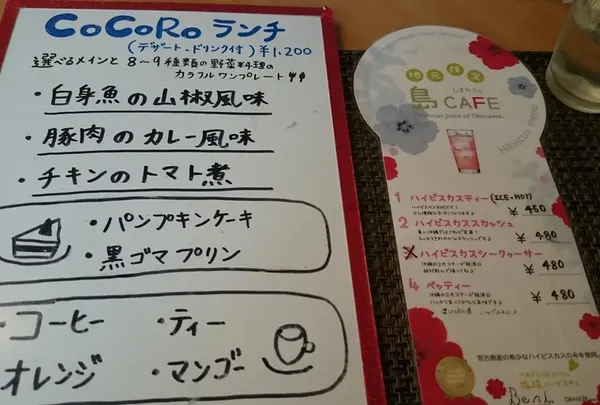 CoCoRo ランチ
(デザート・ドリンク付) ¥1,200
選べるメインと 8〜9種類の野菜料理の
カラフルワンプレート
・白身魚の山椒風味
・豚肉のカレー風味
・チキンのトマト煮
・パンプキンケーキ
・黒ゴマプリン
・コーヒー ・ティー
オレンジ ・マンゴー
地元限定
島CAFE
Hibiscus juice of Okinawa.
Hibiscus menu
1 ハイビスカスティー(ICE・HOT)
¥450
2 ハイビスカススカッシュ
¥480
ハイビスカスシークヮーサー
¥480
4 ベッティー
¥480
宮古島産の希少なハイビスカスのみを使用。